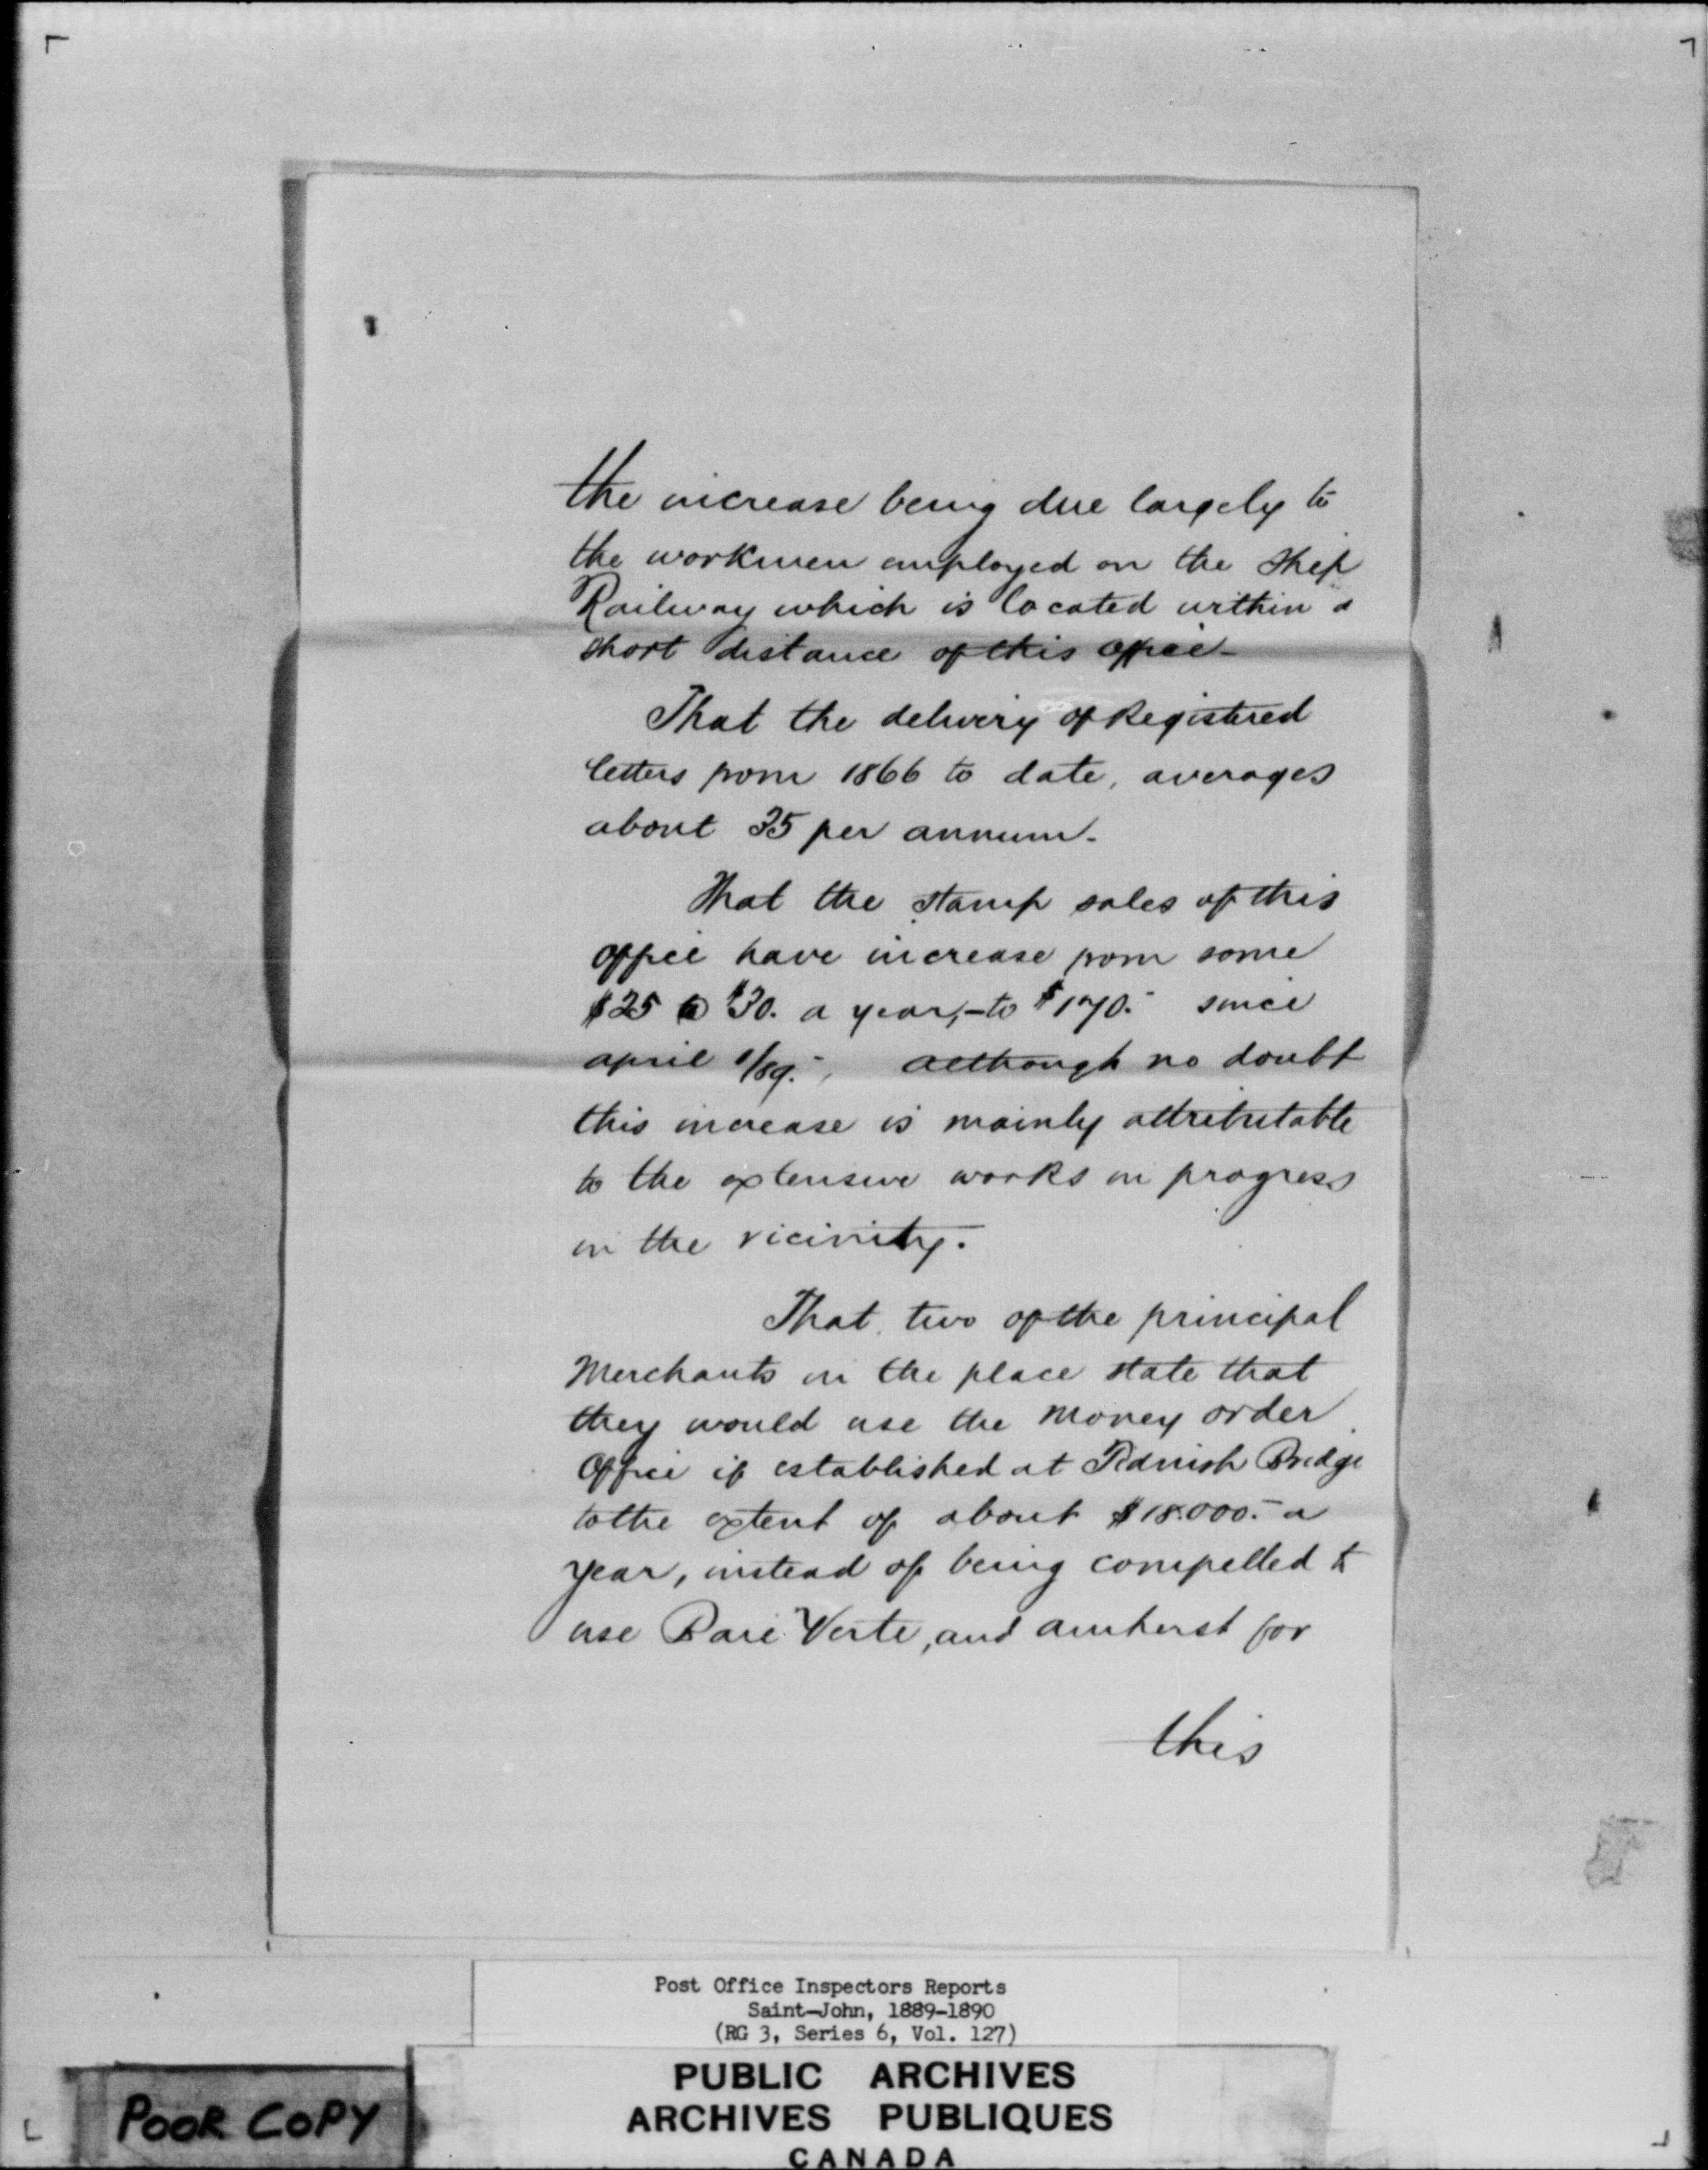 the increase being due largely to
the workmen employed on the Ship
Railway which is located within a
short distance of this office-
That the delivery of Registered
letters from 1866 to date, averages
about 35 per annum.
That the stamp sales of this
office have increase from some
$25 to $30. a year,-to $170.- since
april 1/89.-, although no doubt
this increase is mainly attributable
to the extensive works in progress
in the vicinity.
That two of the principal
Merchants in the place state that
they would use the Money order
Office if established at Tidnish Bridge
to the extent of about $18.000.- a
year, instead of being compelled to
use Baie Verte, and amherst for
this
Post Office Inspectors Reports
Saint-John, 1889-1890
(RG 3, Series 6, Vol. 127)
PUBLIC ARCHIVES
ARCHIVES PUBLIQUES
CANADA
POOR COPY